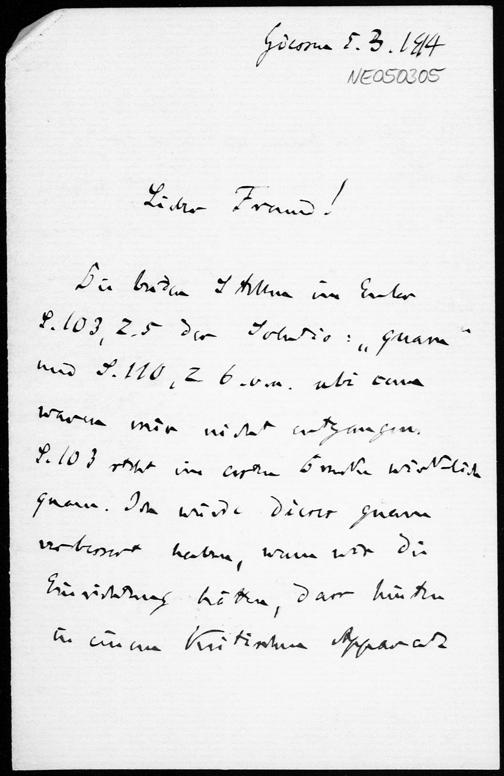 5.3.1914
NE050305
Lieber Freund!
Die beiden Stellen im Euler
S. 103, Z. 5 der Solutio: „quam“
und S. 110, Z 6 v. u. ubi cum
waren mir nicht entgangen.
S. 103 steht im ersten Drucke wirklich
quam. Ich würde dieses quam
verbessert haben, wenn wir die
Einrichtung hätten, dass hinten
in einem Kritischen Apparate